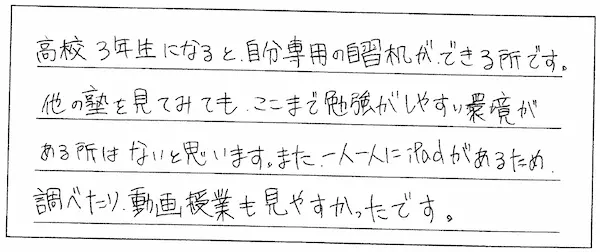 高校3年生になると、自分専用の自習机ができる所です。
他の塾を見てみても、ここまで勉強がしやすい環境が
ある所はないと思います。また、一人一人にiPadがあるため、
調べたり、動画授業も見やすかったです。